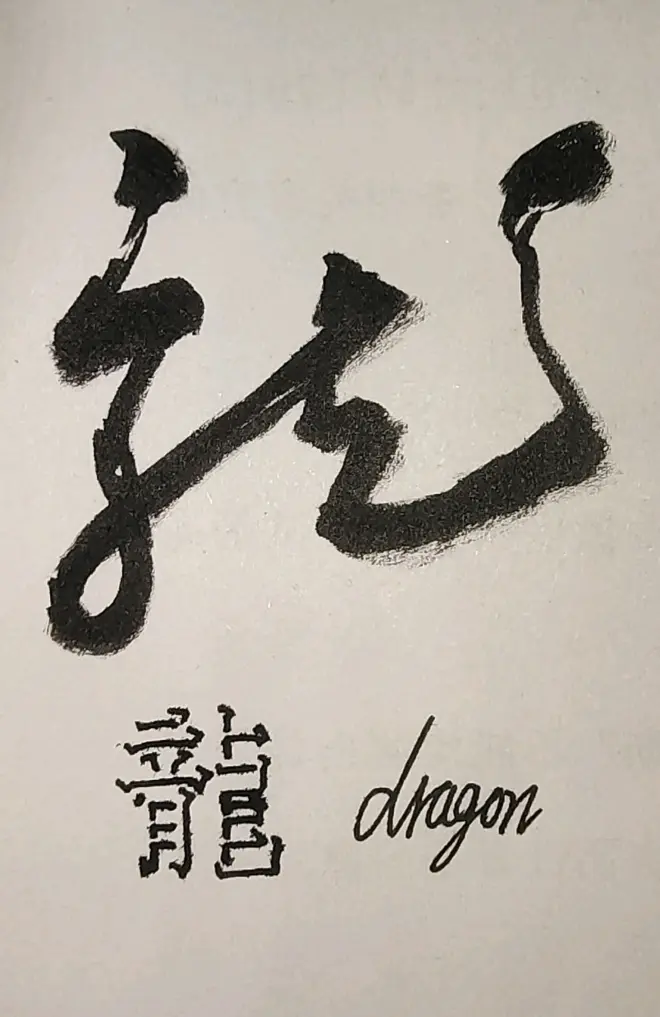 龍
龍 dragon